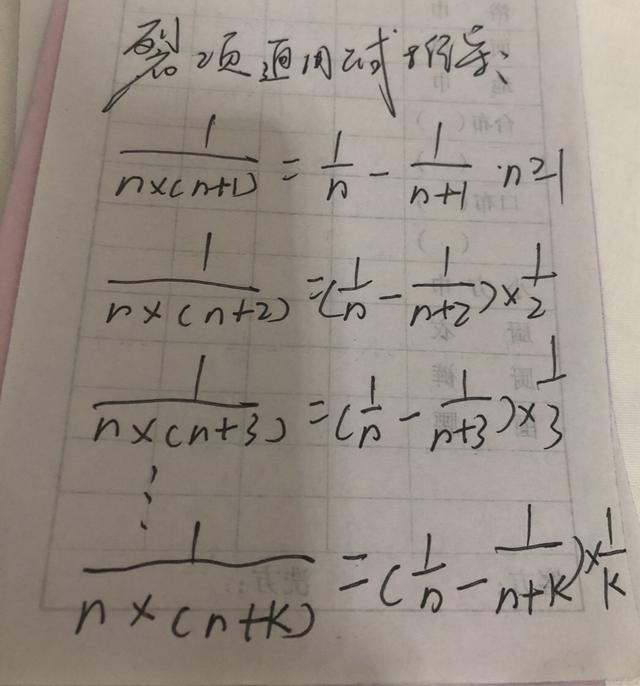 裂项通用公式推导:
1/(n×(n+1)) = 1/n - 1/(n+1) · n≥1
1/(n×(n+2)) = (1/n - 1/(n+2))×1/2
1/(n×(n+3)) = (1/n - 1/(n+3))×1/3
⋮
1/(n×(n+k)) = (1/n - 1/(n+k))×1/k